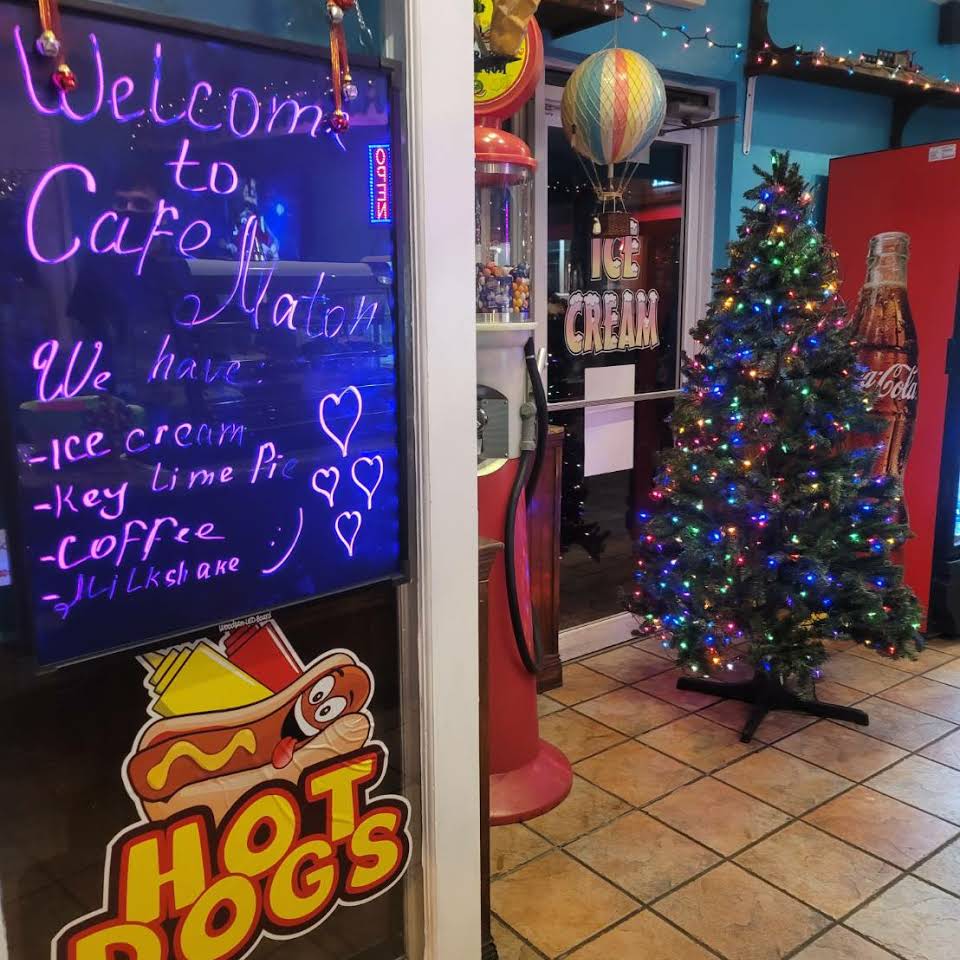 Welcome
to
Cafe
Maton
We have:
-Ice cream
-Key Lime Pie
-Coffee :)
-Milkshake
OPEN
HOT
DOGS
ICE
CREAM
Coca-Cola